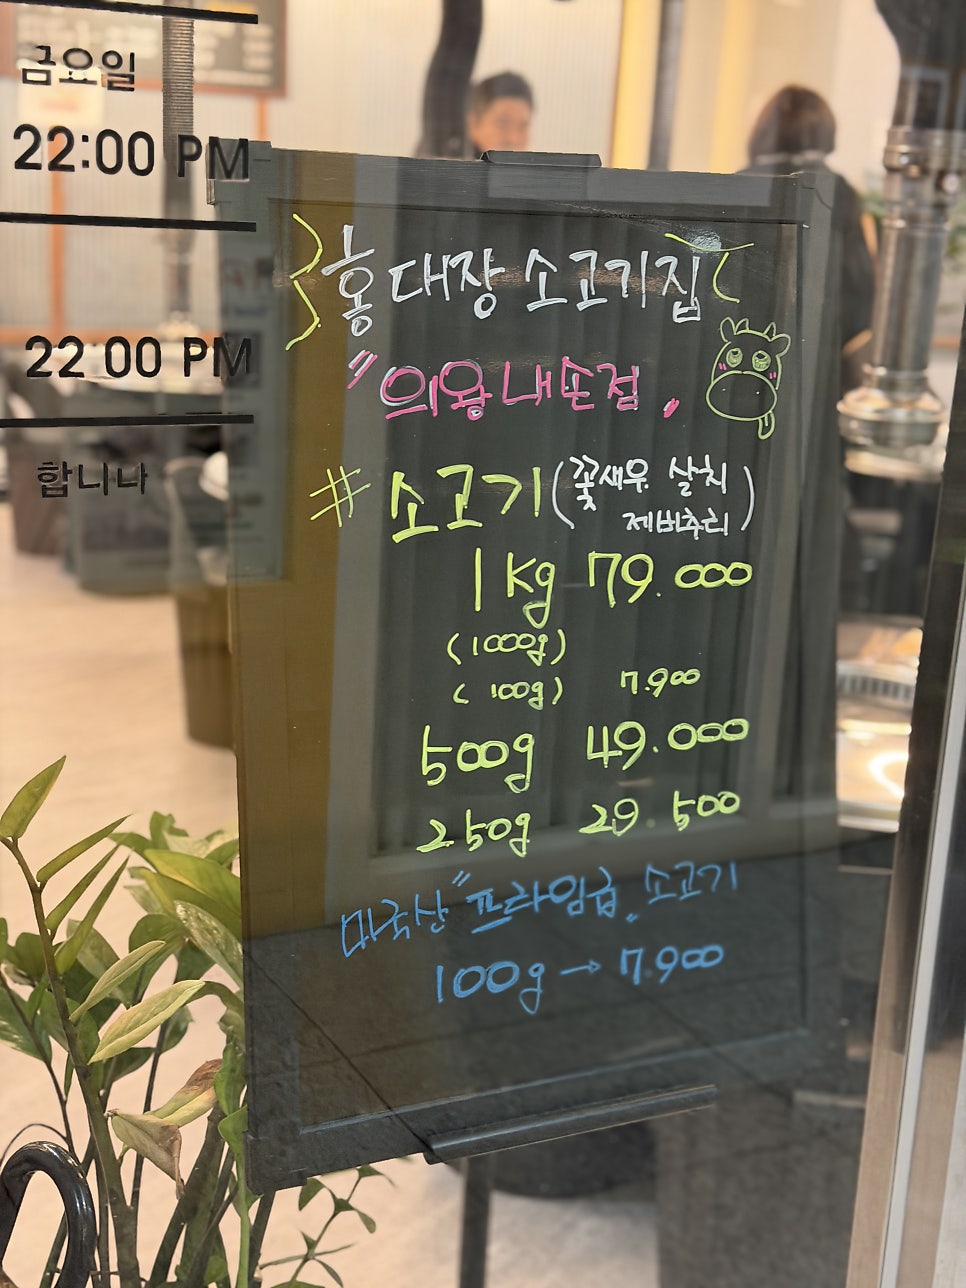 금요일
22:00 PM
22:00 PM
합니나
홍대장 소고기집
"의왕내손점"
# 소고기 (꽃새우 살치
제비추리)
1kg 79.000
(1000g)
(100g) 7.900
500g 49.000
250g 29.500
미국산 "프라임급" 소고기
100g → 7.900